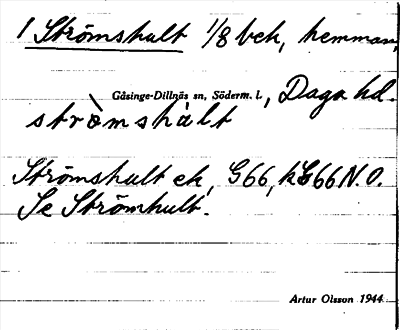 1 Strömshult 1/8 bek, hemman,
Gåsinge-Dillnäs sn, Söderm. l., Daga hd.
strö̀mshàlt
Strömshult ek, G66, hG66 N.O.
Se Strömhult.
Artur Olsson 1944